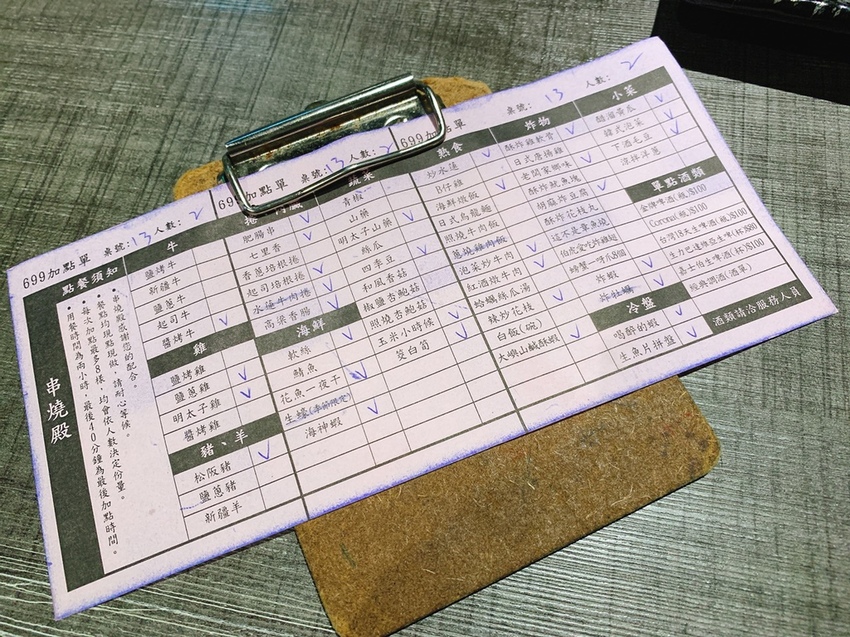 699加點單 桌號: 13 人數: 2
699加點單 桌號: 13 人數: 2
699加點單 桌號: 13 人數: 2
串燒殿
點餐須知
• 串燒殿感謝您的配合。
• 餐點均現點現做,請耐心等候。
• 每次加點最多8樣,均會依人數決定份量。
• 用餐時間為兩小時,最後40分鐘為最後加點時間。
牛
鹽烤牛
新疆牛
鹽蔥牛
起司牛
醬烤牛 ✓
雞
鹽烤雞 ✓
鹽蔥雞 ✓
明太子雞
醬烤雞
豬、羊
松阪豬 ✓
鹽蔥豬
新疆羊
肥腸串 ✓
七里香 ✓
香蔥培根捲
起司培根捲 ✓
水蓮牛肉捲 ✓
高粱香腸 ✓
海鮮
軟絲 ✓
鯖魚
花魚一夜干
生蠔(季節限定)
海神蝦 ✓
蔬菜
青椒
山藥
明太子山藥 ✓
絲瓜
四季豆 ✓
和風香菇
椒鹽杏鮑菇
照燒杏鮑菇 ✓
玉米小時候 ✓
筊白筍 ✓
熟食
炒水蓮 ✓
B仔雞
海鮮燉飯 ✓
日式烏龍麵
照燒牛肉飯
蔥燒雞肉飯
泡菜炒牛肉 ✓
紅酒燉牛肉 ✓
蛤蠣絲瓜湯
辣炒花枝 ✓
白飯(碗)
大嶼山鹹酥蝦 ✓
炸物
酥炸雞軟骨 ✓
日式唐揚雞
老闆家鄉味 ✓
酥炸魷魚塊
胡麻炸豆腐 ✓
酥炸花枝丸
這不是章魚燒
仙虎堂吃炸雞翅
螃蟹一呼凡8個
炸蝦 ✓
炸牡蠣
冷盤
喝醉的蝦 ✓
生魚片拼盤 ✓
小菜
醋溜黃瓜 ✓
韓式泡菜 ✓
下酒毛豆 ✓
涼拌洋蔥
單點酒類
金牌啤酒(瓶)$100
Corona(瓶)$100
台灣18天生啤酒(瓶)$100
生力巴達維亞生啤(杯)$80
嘉士伯生啤酒(杯)$100
經典調酒(酒單)
酒類請洽服務人員